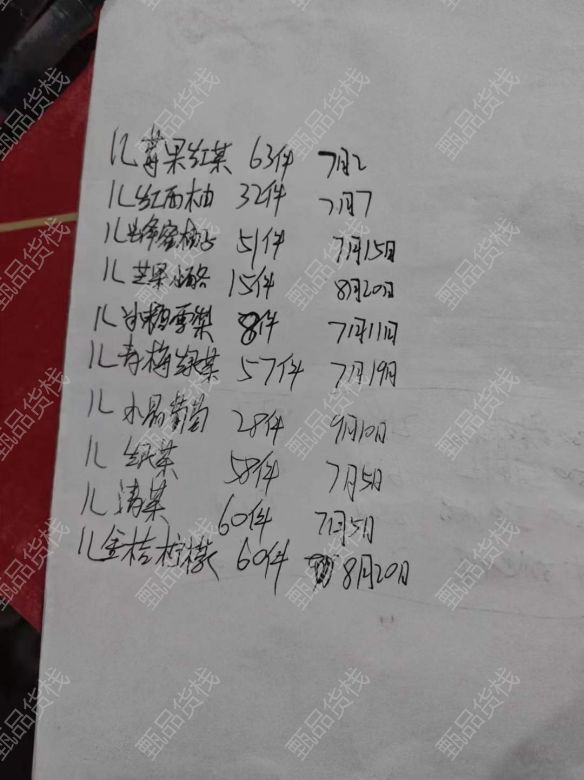 1L苹果红茶 63件 7月2
1L红西柚 32件 7月7
1L蜂蜜柚 51件 7月15日
1L芒果小酪 15件 8月20日
1L冰糖雪梨 8件 7月11日
1L青梅绿茶 57件 7月19日
1L水晶葡萄 28件 9月10日
1L 红茶 58件 7月5日
1L清茶 60件 7月5日
1L金桔柠檬 60件 8月20日
甄品货栈